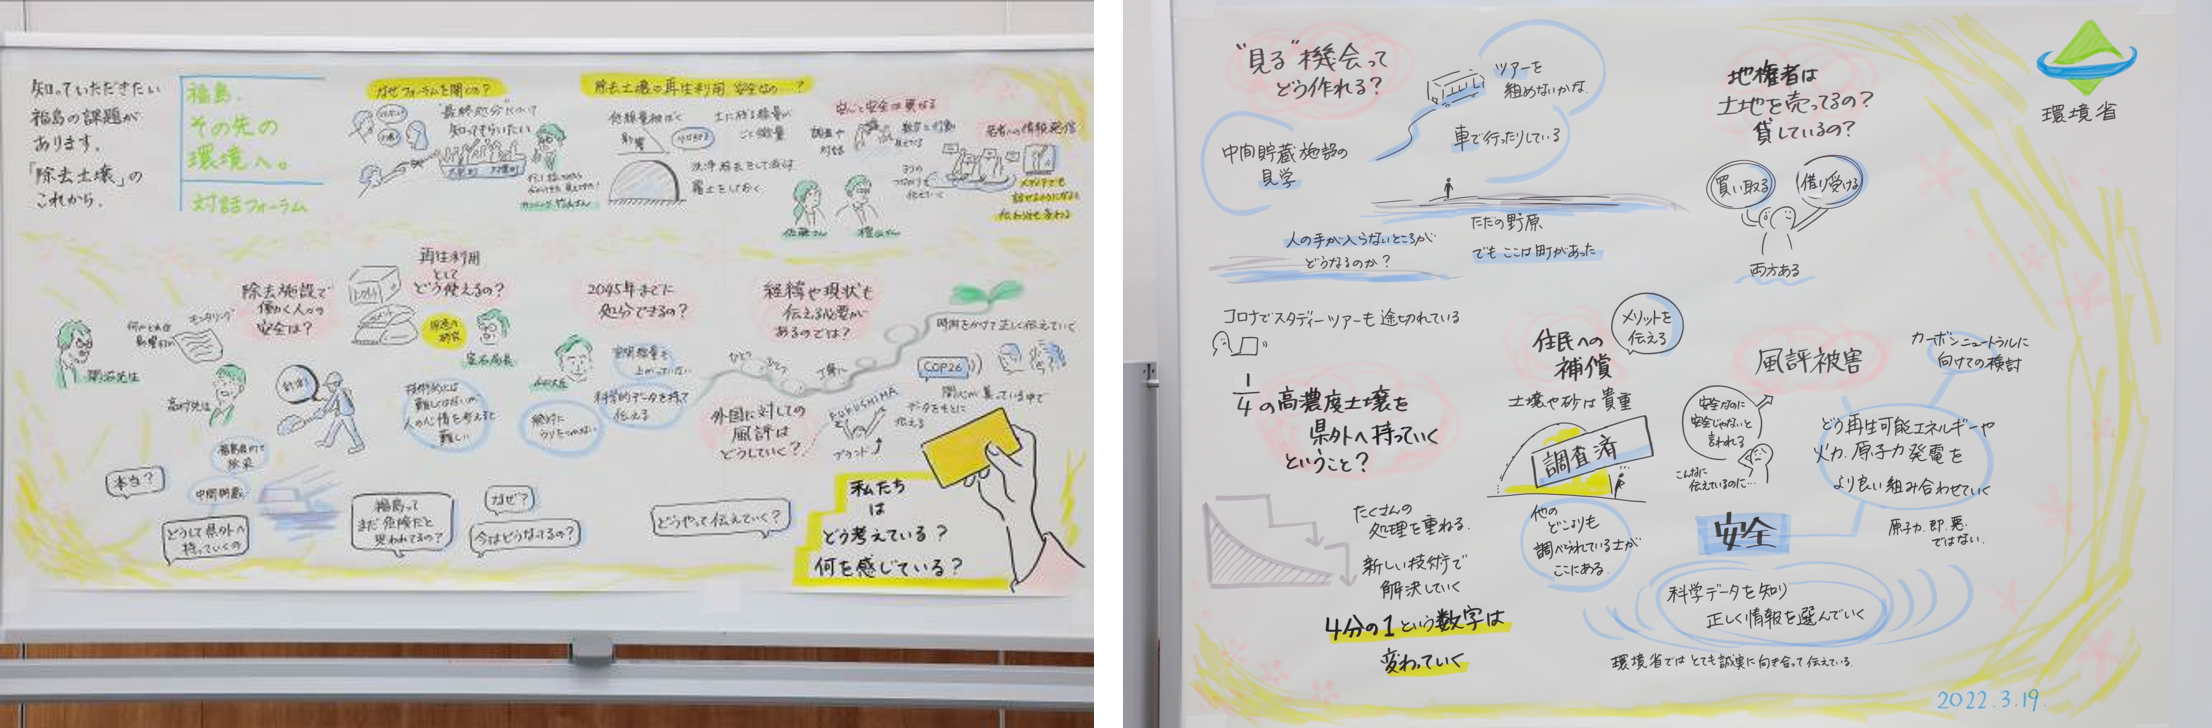 知っていただきたい
福島の課題が
あります。
「除去土壌」の
これから。
福島、
その先の
環境へ。
対話フォーラム
なぜフォーラムを開くの?
"最終処分"について
知ってもらいたい
除去土壌の再生利用 安全なの…?
安心と安全は異なる
調査や
対話
若者への情報発信
覆土をしておく
佐藤さん
除去施設で
働く人々の
安全は?
モニタリング
開沼先生
高村先生
再生利用
として
どう使えるの?
室石局長
技術的には
難しくはないが
人の心情を考えると
難しい
2045年までに
処分できるの?
空間線量も
上がっていない
科学的データを持って
伝える
絶対に
経緯や現状も
伝える必要が
あるのでは?
ひとつ
ひとつ
丁寧に
時間をかけて正しく伝えていく
COP26
関心が集っている中で
データをもとに
伝える
外国に対しての
風評は
どうしていく?
FUKUSHIMA
ブランド
福島県内で
除染
中間貯蔵
本当?
どうして県外へ
持っていくの
福島って
まだ危険だと
思われてるの?
なぜ?
今はどうなってるの?
どうやって伝えていく?
私たち
は
どう考えている?
何を感じている?
"見る"機会って
どう作れる?
ツアーを
組めないかな
車で行ったりしている
中間貯蔵施設の
見学
ただの野原
でもここは町があった
人の手が入らないところが
どうなるのか?
地権者は
土地を売ってるの?
貸しているの?
買い取る
借り受ける
両方ある
環境省
コロナでスタディーツアーも途切れている
1/4の高濃度土壌を
県外へ持っていく
ということ?
たくさんの
処理を重ねる
新しい技術で
解決していく
4分の1という数字は
変わっていく
住民への
補償
メリットを
伝える
土壌や砂は貴重
調査済
他の
どこよりも
調べられている土が
ここにある
風評被害
安全なのに
安全じゃないと
言われる
こんなに
伝えているのに…
カーボンニュートラルに
向けての検討
どう再生可能エネルギーや
火力、原子力発電を
より良い組み合わせていく
原子力、即、悪
ではない.
安全
科学データを知り
正しく情報を選んでいく
環境省ではとても誠実に向き合って伝えている.
2022.3.19.